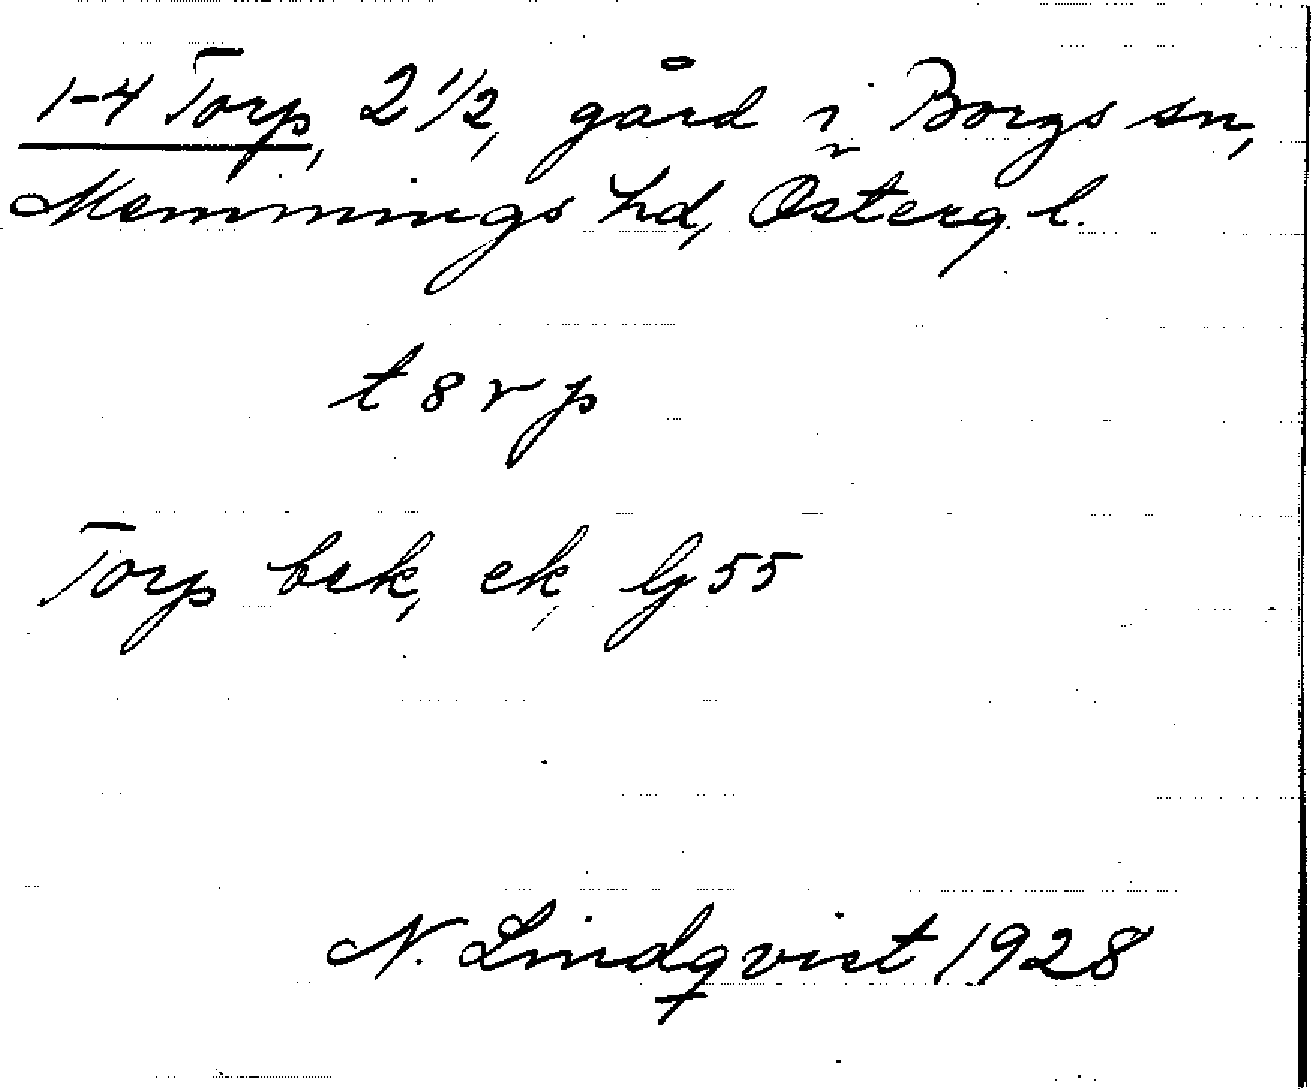 1-4 Torp, 2 1/2, gård i Borgs sn,
Memmings hd, Österg. l.
t 8 r p
Torp bek, ek, lj 55
N. Lindqvist 1928